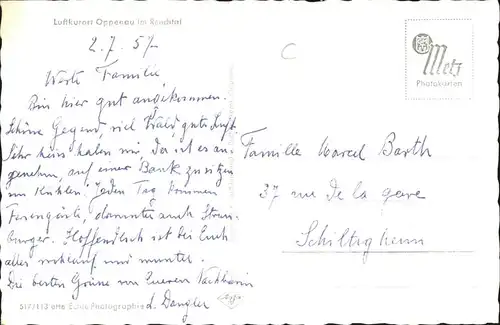 Luftkurort Oppenau im Renchtal
2.7.57
Metz
Photokarten
Werte Familie,
Bin hier gut angekommen.
Schöne Gegend, viel Wald gute Luft.
Sehr heiss haben wir, da ist es an-
genehm, auf einer Bank zu sitzen
im Kühlen. Jeden Tag kommen
Feriengäste, darunter auch Strass-
burger. Hoffendlich ist bei Euch
alles wohlauf und munter.
Die besten Grüsse von Eueren Nachbarin
L. Dangler
Familie Marcel Barth
37 rue de la gare
Schiltigheim
Echte Photographie
Agfa